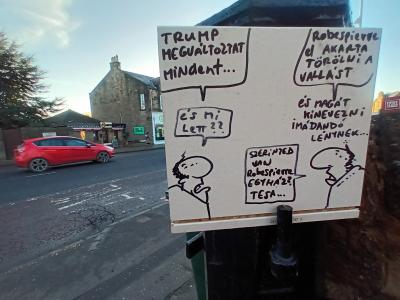 TRUMP
MEGVÁLTOZTAT
MINDENT...
ÉS MI
LETT??
Robespierre
el AKARTA
TÖRÖLNI A
VALLÁST
ÉS MAGÁT
KINEVEZNI
IMÁDANDÓ
LENTNEK...
SZERINTED
VAN
Robespierre
EGYHÁZ?
TESA...